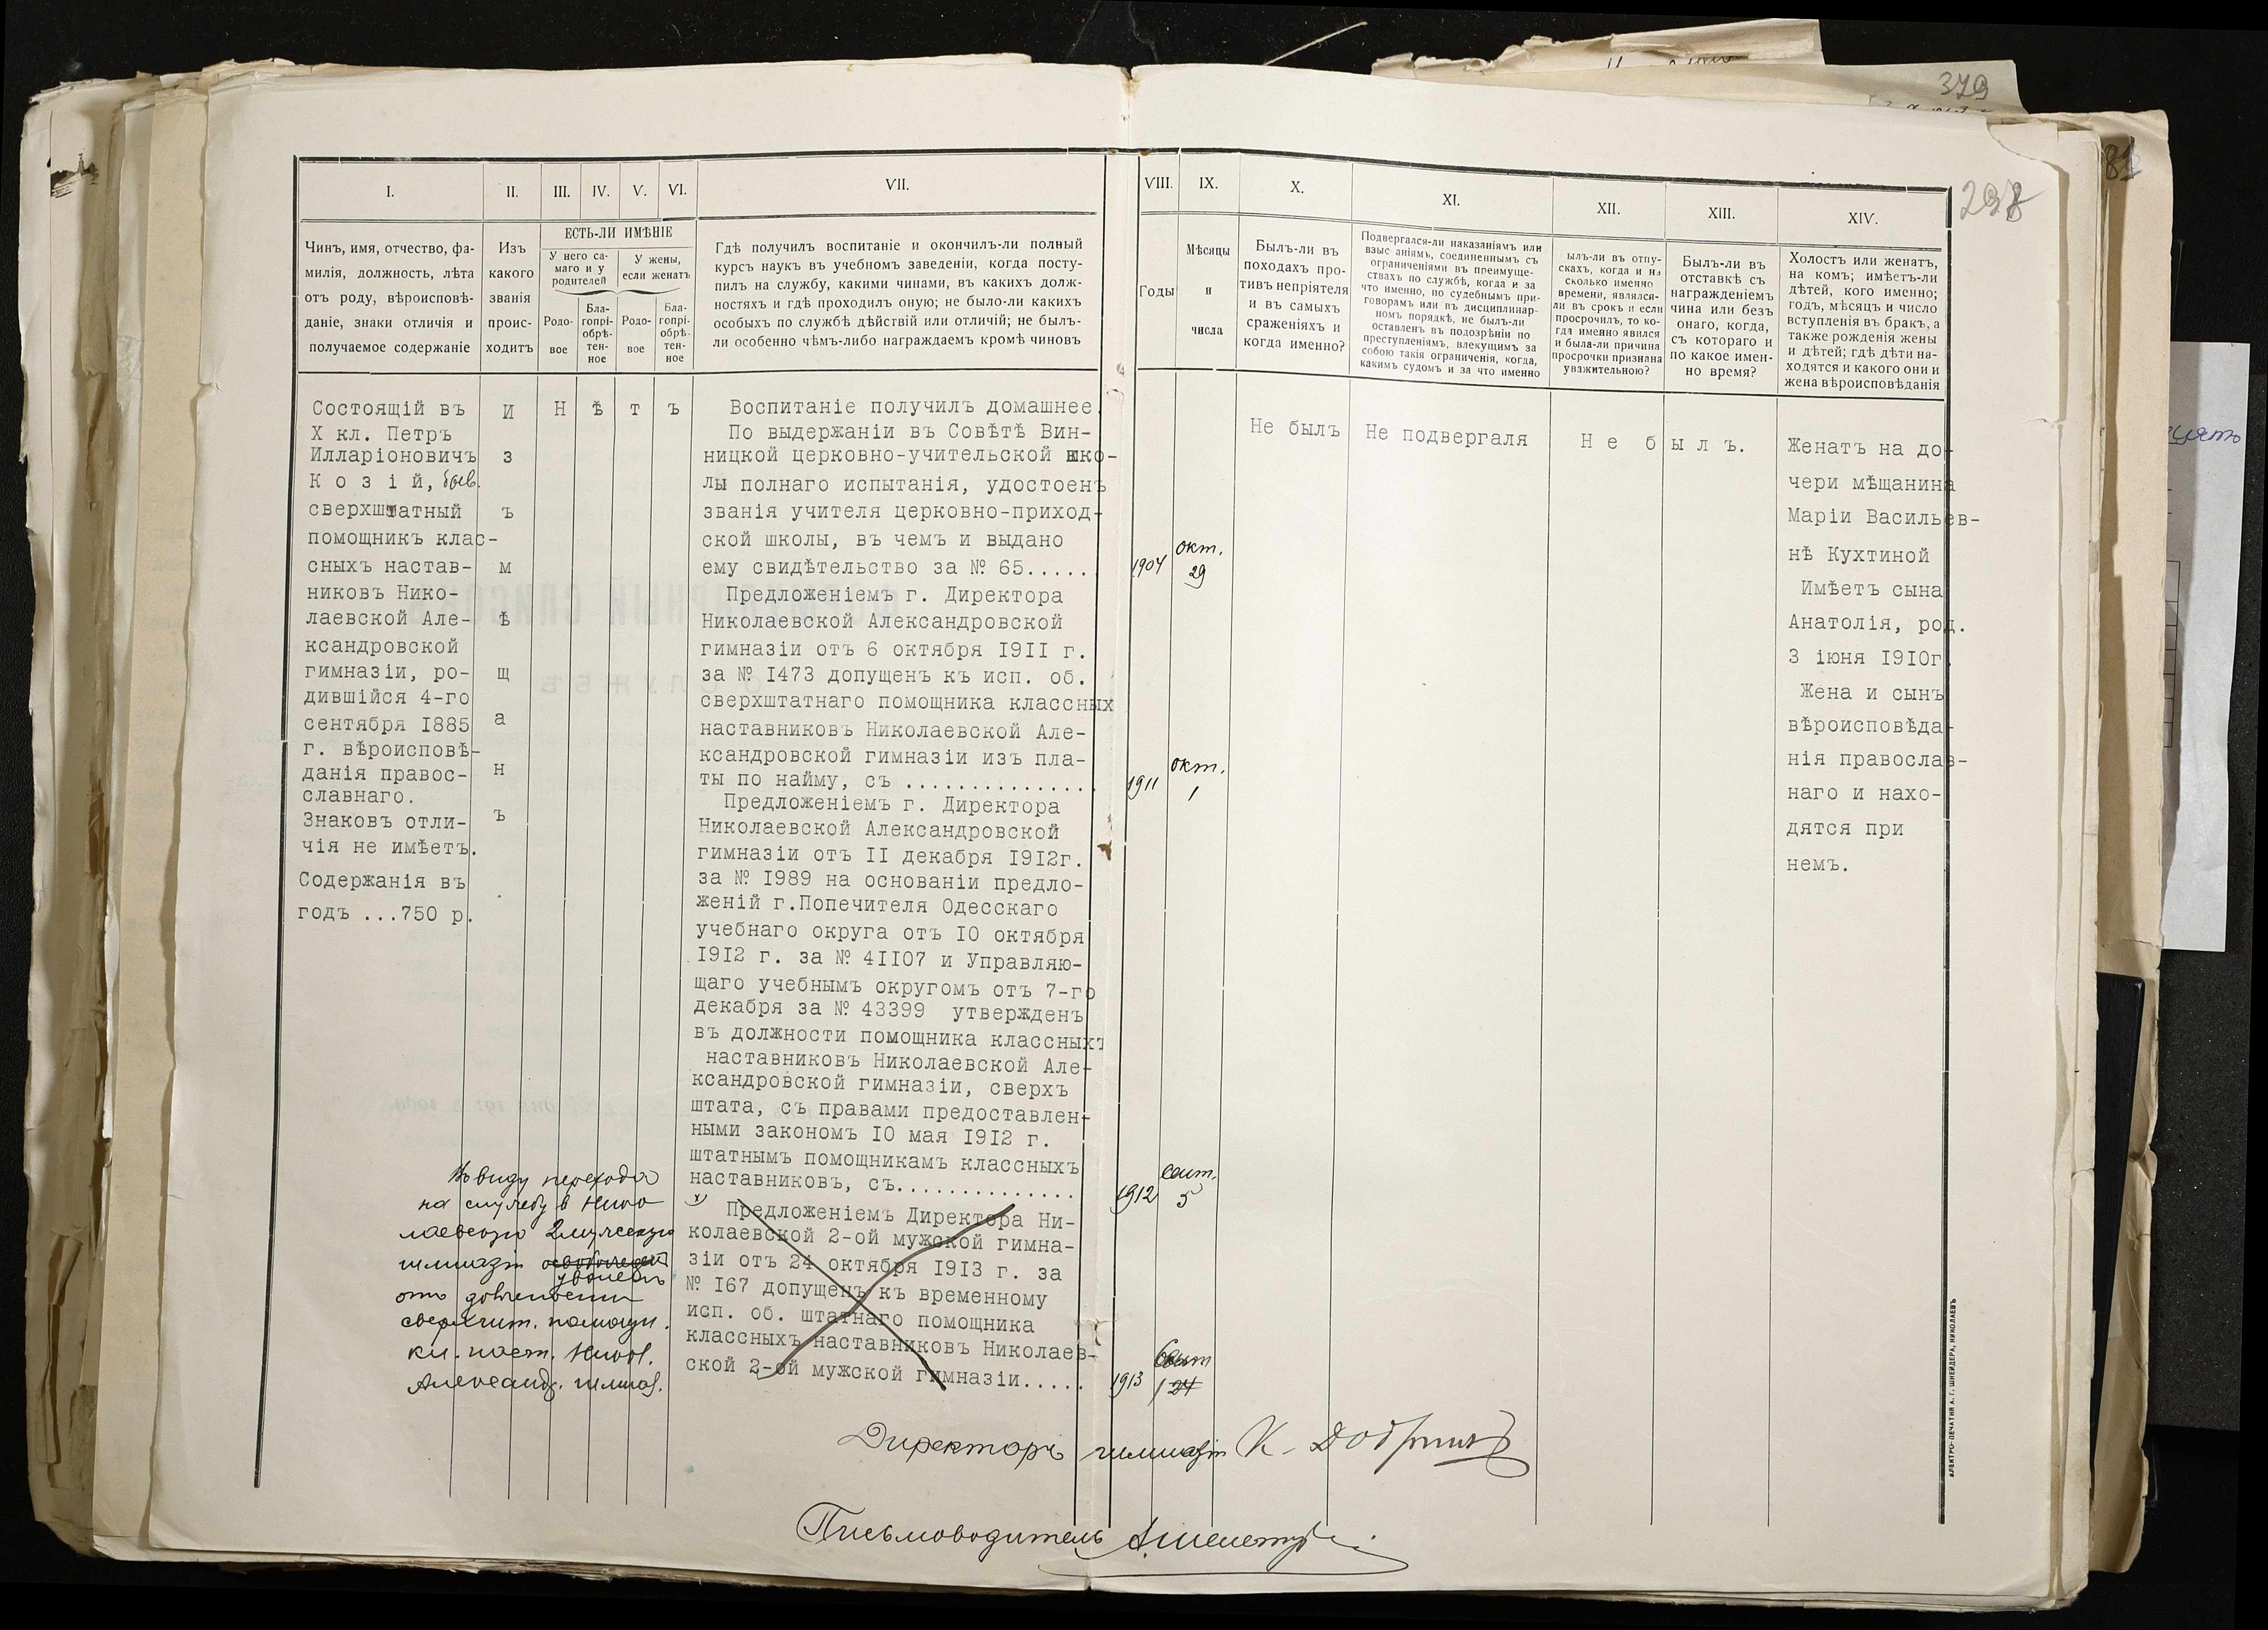 379
81
298
I.
II.
III.
IV.
V.
VI.
VII.
VIII.
IX.
X.
XI.
XII.
XIII.
XIV.
Чинъ, имя, отчество, фа-
милія, должность, лѣта
отъ роду, вѣроисповѣ-
даніе, знаки отличія и
получаемое содержаніе
Изъ
какого
званія
проис-
ходитъ
ЕСТЬ-ЛИ ИМѢНІЕ
У него са-
маго и у
родителей
У жены,
если женатъ
Родо-
вое
Бла-
гопрі-
обрѣ-
тен-
ное
Родо-
вое
Бла-
гопрі-
обрѣ-
тен-
ное
Гдѣ получилъ воспитаніе и окончилъ-ли полный
курсъ наукъ въ учебномъ заведеніи, когда посту-
пилъ на службу, какими чинами, въ какихъ долж-
ностяхъ и гдѣ проходилъ оную; не было-ли какихъ
особыхъ по службѣ дѣйствій или отличій; не былъ-
ли особенно чѣмъ-либо награждаемъ кромѣ чиновъ
Годы
Мѣсяцы
и
числа
Былъ-ли въ
походахъ про-
тивъ непріятеля
и въ самыхъ
сраженіяхъ и
когда именно?
Подвергался-ли наказаніямъ или
взыс аніямъ, соединеннымъ съ
ограниченіями въ преимуще-
ствахъ по службѣ, когда и за
что именно, по судебнымъ при-
говорамъ или въ дисциплинар-
номъ порядкѣ, не былъ-ли
оставленъ въ подозрѣніи по
преступленіямъ, влекущимъ за
собою такія ограниченія, когда,
какимъ судомъ и за что именно
ылъ-ли въ отпу-
скахъ, когда и на
сколько именно
времени, являлся-
ли въ срокъ и если
просрочилъ, то ко-
гда именно явился
и была-ли причина
просрочки признана
уважительною?
Былъ-ли въ
отставкѣ съ
награжденіемъ
чина или безъ
онаго, когда,
съ котораго и
по какое имен-
но время?
Холостъ или женатъ,
на комъ; имѣетъ-ли
дѣтей, кого именно;
годъ, мѣсяцъ и число
вступленія въ бракъ, а
также рожденія жены
и дѣтей; гдѣ дѣти на-
ходятся и какого они и
жена вѣроисповѣданія
Состоящій въ
X кл. Петръ
Илларіоновичъ
К о з і й, бывш.
сверхштатный
помощникъ клас-
сныхъ настав-
никовъ Нико-
лаевской Але-
ксандровской
гимназіи, ро-
дившійся 4-го
сентября 1885
г. вѣроисповѣ-
данія правос-
славнаго.
Знаковъ отли-
чія не имѣетъ.
Содержанія въ
годъ ...750 р.
И
з
ъ
м
ѣ
щ
а
н
ъ
Н ѣ т ъ
Воспитаніе получилъ домашнее.
По выдержаніи въ Совѣтѣ Вин-
ницкой церковно-учительской шко-
лы полнаго испытанія, удостоенъ
званія учителя церковно-приход-
ской школы, въ чемъ и выдано
ему свидѣтельство за № 65......
Предложеніемъ г. Директора
Николаевской Александровской
гимназіи отъ 6 октября 1911 г.
за № 1473 допущенъ къ исп. об.
сверхштатнаго помощника классных
наставниковъ Николаевской Але-
ксандровской гимназіи изъ пла-
ты по найму, съ ...............
Предложеніемъ г. Директора
Николаевской Александровской
гимназіи отъ 11 декабря 1912г.
за № 1989 на основаніи предло-
женій г.Попечителя Одесскаго
учебнаго округа отъ 10 октября
1912 г. за № 41107 и Управляю-
щаго учебнымъ округомъ отъ 7-го
декабря за № 43399 утвержденъ
въ должности помощника классныхъ
наставниковъ Николаевской Але-
ксандровской гимназіи, сверхъ
штата, съ правами предоставлен-
ными закономъ 10 мая 1912 г.
штатнымъ помощникамъ классныхъ
наставниковъ, съ..............
Предложеніемъ Директора Ни-
колаевской 2-ой мужской гимна-
зіи отъ 24 октября 1913 г. за
№ 167 допущенъ къ временному
исп. об. штатнаго помощника
классныхъ наставниковъ Николаев-
ской 2-ой мужской гимназіи.....
1904
окт.
29
1911
окт.
1
1912
Сент.
5
1913
1 24
Не былъ
Не подвергаля
Н е б ы л ъ.
Женатъ на до-
чери мѣщанина
Маріи Васильев-
нѣ Кухтиной
Имѣетъ сына
Анатолія, род.
3 іюня 1910г.
Жена и сынъ
вѣроисповѣда-
нія православ-
наго и нахо-
дятся при
немъ.
Въ виду перехода
на службу в Нико
лаевскую 2 мужскую
гимназію освобожден
уволенъ
отъ должности
сверхшт. помощн.
кл. наст. Никол.
Александр. гимназ.
Директоръ гимназіи К.
Письмоводитель
ЛЕКТРО-ПЕЧАТНЯ А. Г. ШНЕЙДЕРА, НИКОЛАЕВЪ